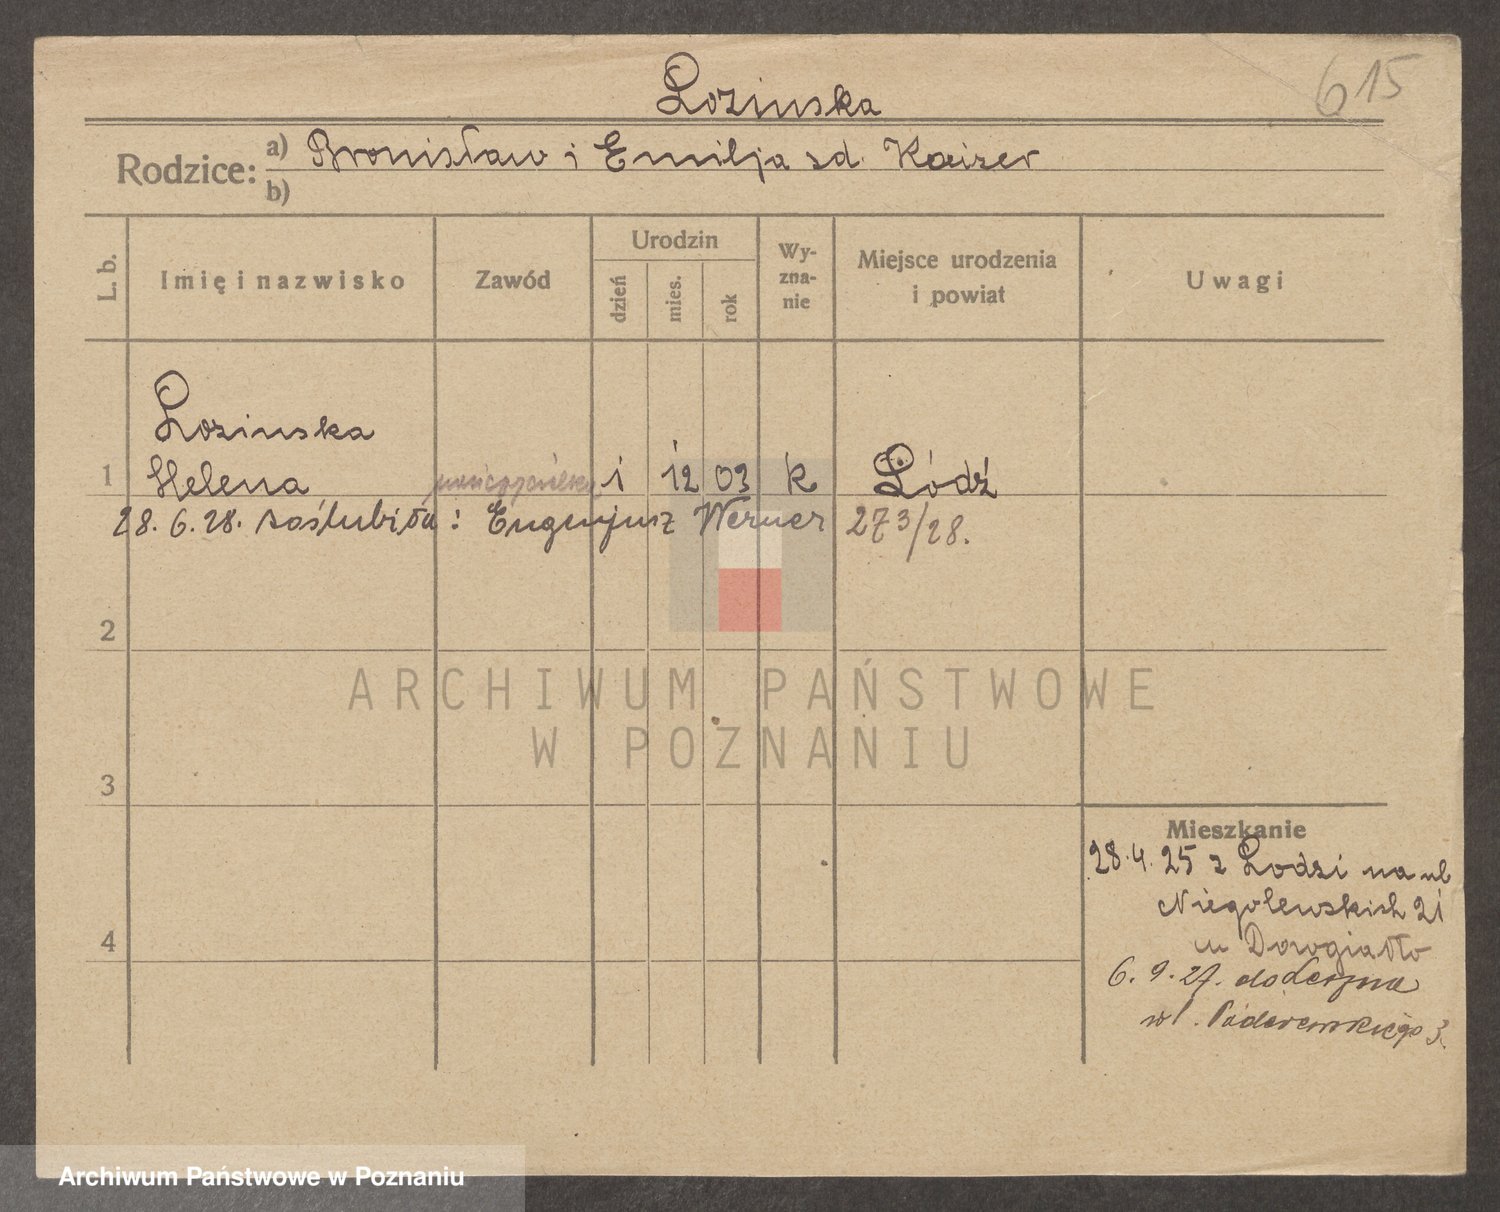 Łozinska
615
Rodzice: a) Bronisław i Emilja zd. Kaiser
b)
L. b.
Imię i nazwisko
Zawód
Urodzin
dzień
mies.
rok
Wy-
zna-
nie
Miejsce urodzenia
i powiat
Uwagi
Łozinska
1 Helena 1 12 03 k Łódź
28. 6. 28. zaślubiła: Eugenjusz Werner 273/28.
2
ARCHIWUM PAŃSTWOWE
W POZNANIU
3
Mieszkanie
28. 4. 25 z Łodzi na ul
Niegolewskich 21
4
6. 9. 27. do Leszna
ul. Paderewskiego 3.
Archiwum Państwowe w Poznaniu